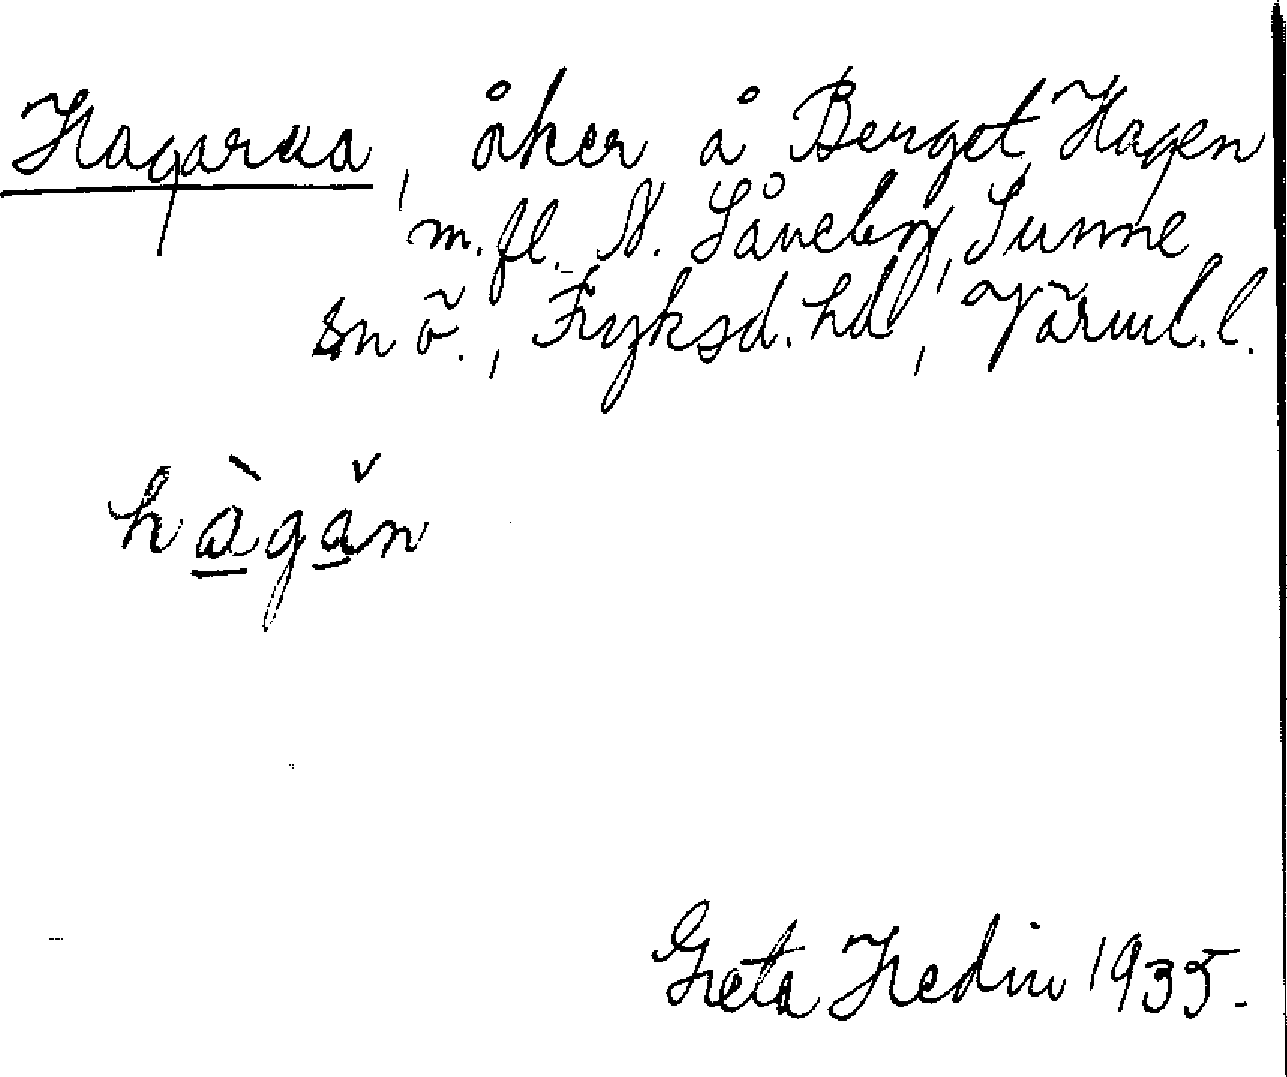 Hagarna, åker å Berget, Hagen
m.fl. N. Såneby, Sunne
sn ö., Fryksd. hd, Värml. l.
hàgăn
Greta Hedin 1935.